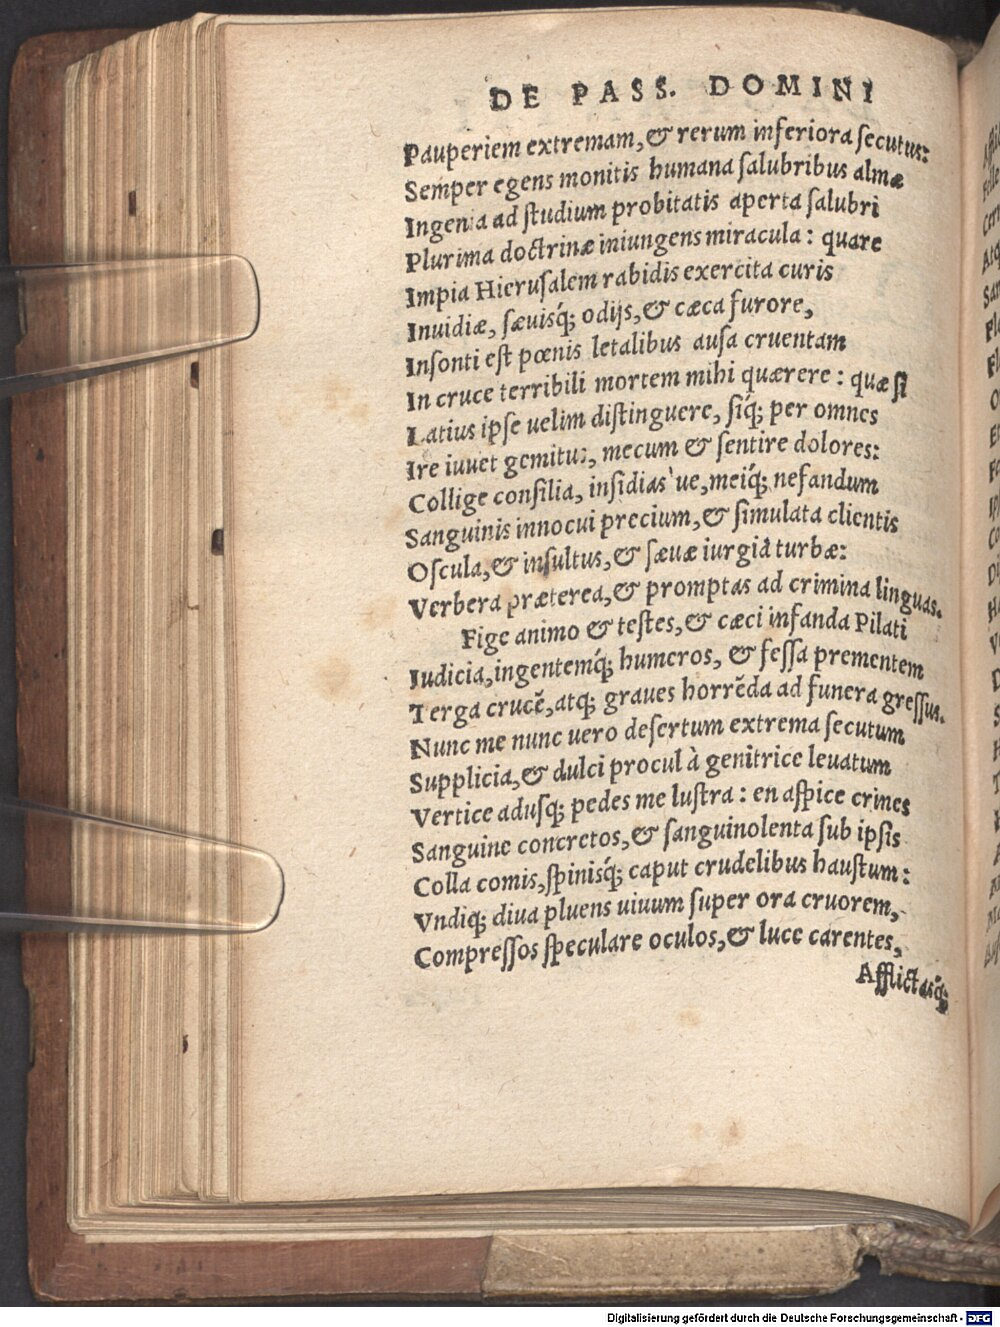 DE PASS. DOMINI
Pauperiem extremam, & rerum inferiora ſecutus:
Semper egens monitis humana ſalubribus almæ
Ingenia ad ſtudium probitatis aperta ſalubri
Plurima doctrinæ iniungens miracula: quare
Impia Hieruſalem rabidis exercita curis
Inuidiæ, ſæuisq́; odijs, & cæca furore,
Inſonti eſt pœnis letalibus auſa cruentam
In cruce terribili mortem mihi quærere: quæ ſi
Latius ipſe uelim diſtinguere, ſiq́; per omnes
Ire iuuet gemitus, mecum & ſentire dolores:
Collige conſilia, inſidias'ue, meiq́; nefandum
Sanguinis innocui precium, & ſimulata clientis
Oſcula, & inſultus, & ſæuæ iurgia turbæ:
Verbera præterea, & promptas ad crimina linguas.
Fige animo & teſtes, & cæci infanda Pilati
Iudicia, ingentemq́; humeros, & feſſa prementem
Terga crucē, atq; graues horrēda ad funera greſſus.
Nunc me nunc uero deſertum extrema ſecutum
Supplicia, & dulci procul à genitrice leuatum
Vertice aduſq; pedes me luſtra: en aſpice crines
Sanguine concretos, & ſanguinolenta ſub ipſis
Colla comis, ſpinisq́; caput crudelibus hauſtum:
Vndiq; diua pluens uiuum ſuper ora cruorem,
Compreſſos ſpeculare oculos, & luce carentes,
Afflictasq́;
Digitalisierung gefördert durch die Deutsche Forschungsgemeinschaft - DFG